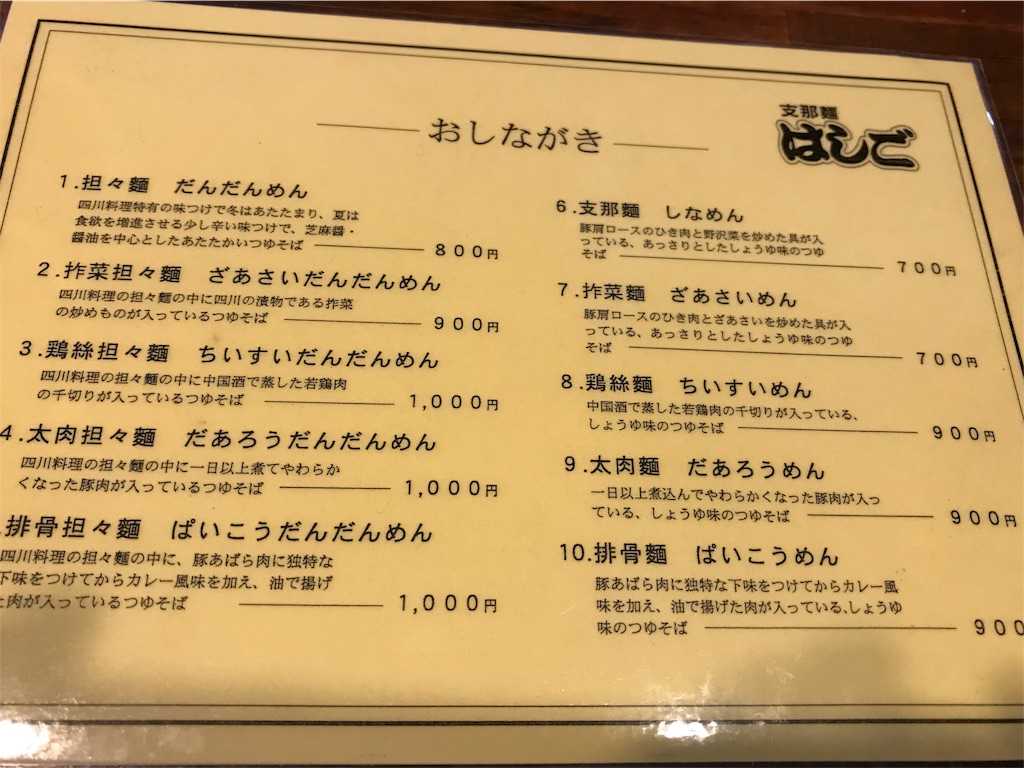 おしながき
支那麺
はしご
1.担々麺 だんだんめん
四川料理特有の味つけで冬はあたたまり、夏は
食欲を増進させる少し辛い味つけで、芝麻醤・
醤油を中心としたあたたかいつゆそば
800円
2.搾菜担々麺 ざあさいだんだんめん
四川料理の担々麺の中に四川の漬物である搾菜
の炒めものが入っているつゆそば
900円
3.鶏絲担々麺 ちいすいだんだんめん
四川料理の担々麺の中に中国酒で蒸した若鶏肉
の千切りが入っているつゆそば
1,000円
4.太肉担々麺 だあろうだんだんめん
四川料理の担々麺の中に一日以上煮てやわらか
くなった豚肉が入っているつゆそば
1,000円
.排骨担々麺 ぱいこうだんだんめん
四川料理の担々麺の中に、豚あばら肉に独特な
下味をつけてからカレー風味を加え、油で揚げ
た肉が入っているつゆそば
1,000円
6.支那麺 しなめん
豚肩ロースのひき肉と野沢菜を炒めた具が入
っている、あっさりとしたしょうゆ味のつゆ
そば
700円
7.搾菜麺 ざあさいめん
豚肩ロースのひき肉とざあさいを炒めた具が入
っている、あっさりとしたしょうゆ味のつゆ
そば
700円
8.鶏絲麺 ちいすいめん
中国酒で蒸した若鶏肉の千切りが入っている、
しょうゆ味のつゆそば
900円
9.太肉麺 だあろうめん
一日以上煮込んでやわらかくなった豚肉が入っ
ている、しょうゆ味のつゆそば
900円
10.排骨麺 ぱいこうめん
豚あばら肉に独特な下味をつけてからカレー風
味を加え、油で揚げた肉が入っている、しょうゆ
味のつゆそば
900